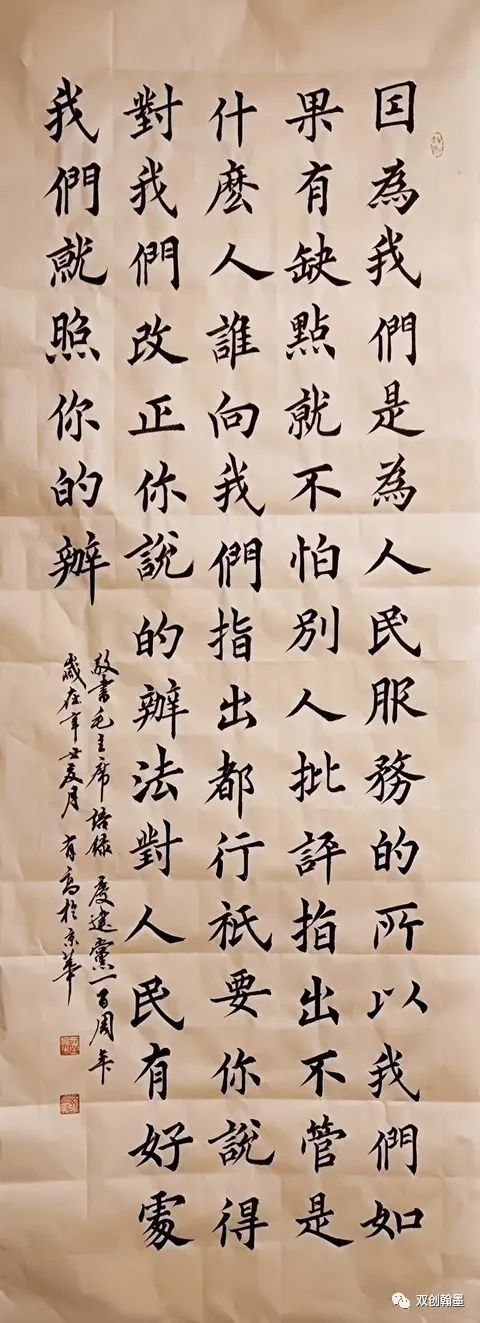 因為我們是為人民服務的所以我們如
果有缺點就不怕別人批評指出不管是
什麼人誰向我們指出都行祇要你說得
對我們改正你說的辦法對人民有好處
我們就照你的辦
敬書毛主席語錄 慶建黨一百周年
歲在辛丑夏月 有高於京華
双创翰墨